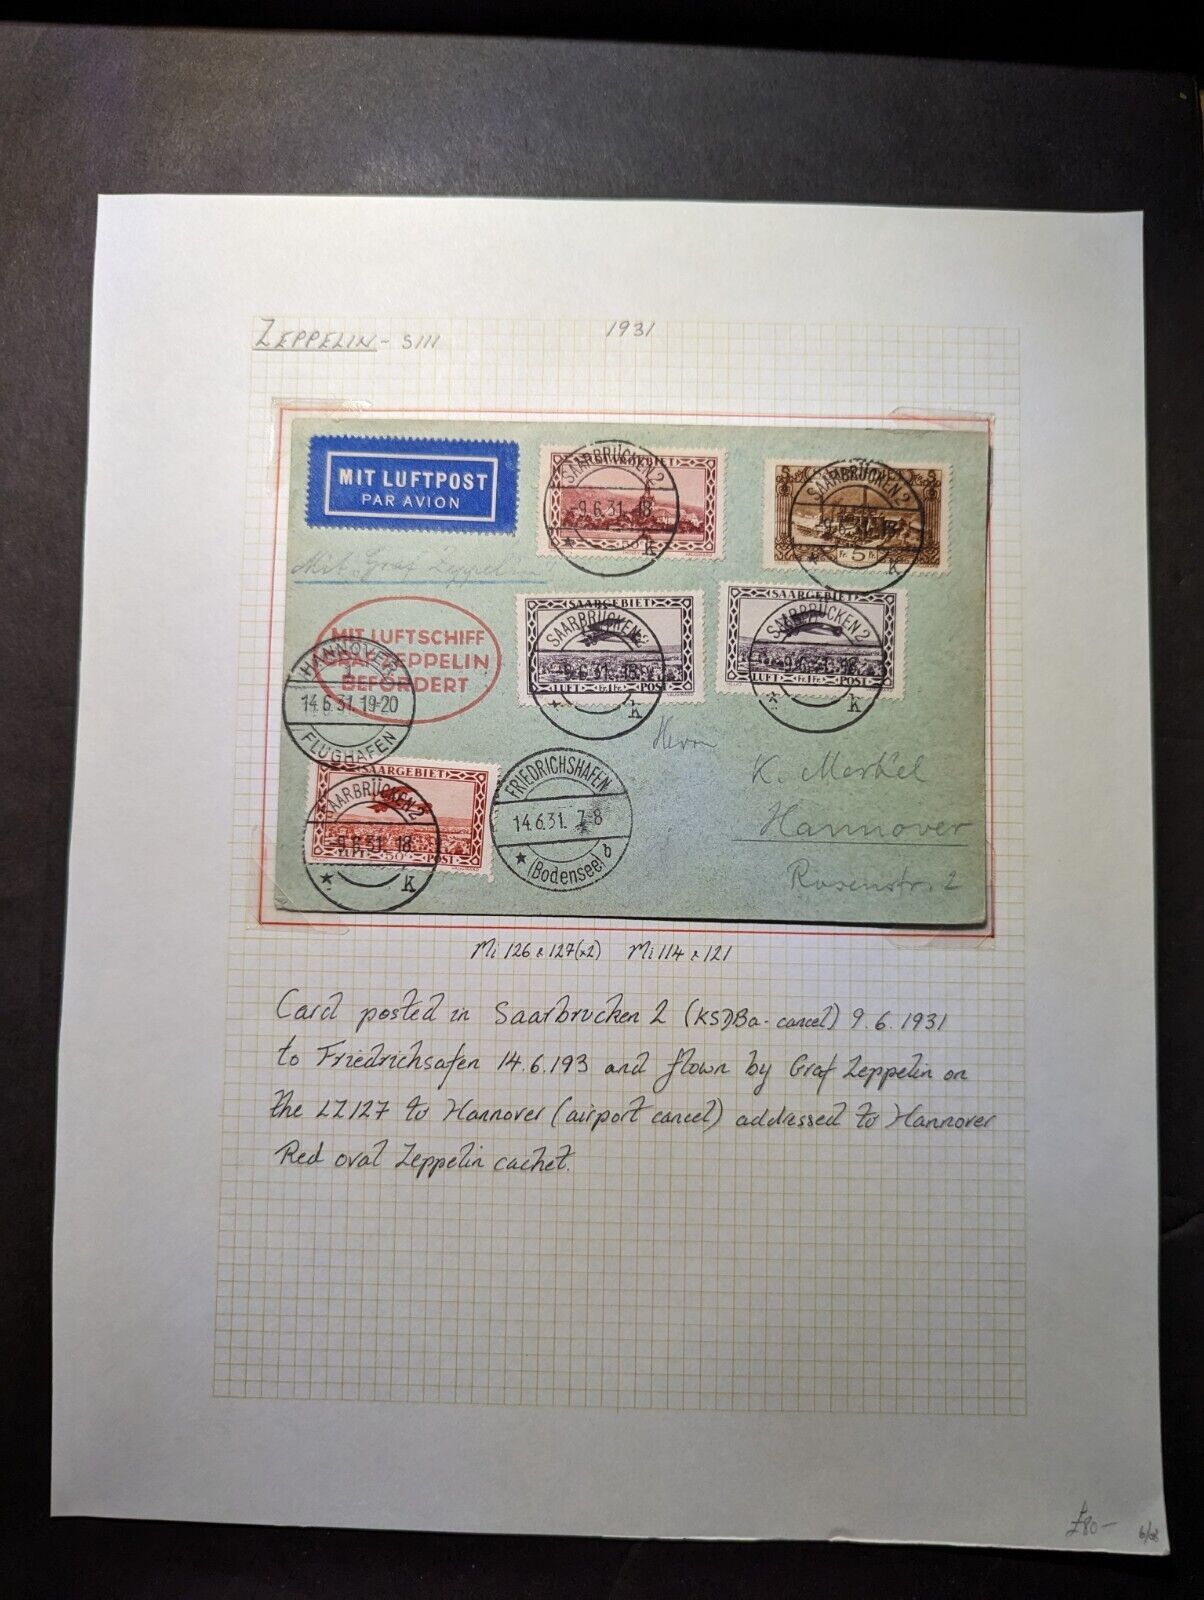 ZEPPELIN - S111
1931
MIT LUFTPOST
PAR AVION
Mit "Graf Zeppelin"
SAARGEBIET
SAARBRÜCKEN 2
9.6.31.18
* k
5 5
SAARBRÜCKEN 2
9.6.31.18
* k
Fr. 5 Fr.
SAARGEBIET
SAARBRÜCKEN 2
9.6.31.18
LUFT Fr. 1 Fr. POST
* k
SAARGEBIET
SAARBRÜCKEN 2
9.6.31.18
LUFT Fr. 1 Fr. POST
* k
MIT LUFTSCHIFF
GRAF ZEPPELIN
BEFÖRDERT
HANNOVER
14.6.31.19-20
FLUGHAFEN
Herrn
K. Merkel
Hannover
Rosenstr. 2
SAARGEBIET
SAARBRÜCKEN 2
9.6.31.18
LUFT 50 POST
* k
FRIEDRICHSHAFEN
14.6.31. 7-8
* (Bodensee) b
Mi 126 & 127(x2) Mi 114 & 121
Card posted in Saarbrucken 2 (KSDBa - cancel) 9.6.1931
to Friedrichsafen 14.6.193 and flown by Graf Zeppelin on
the LZ127 to Hannover (airport cancel) addressed to Hannover
Red oval Zeppelin cachet.
£80-
6/08